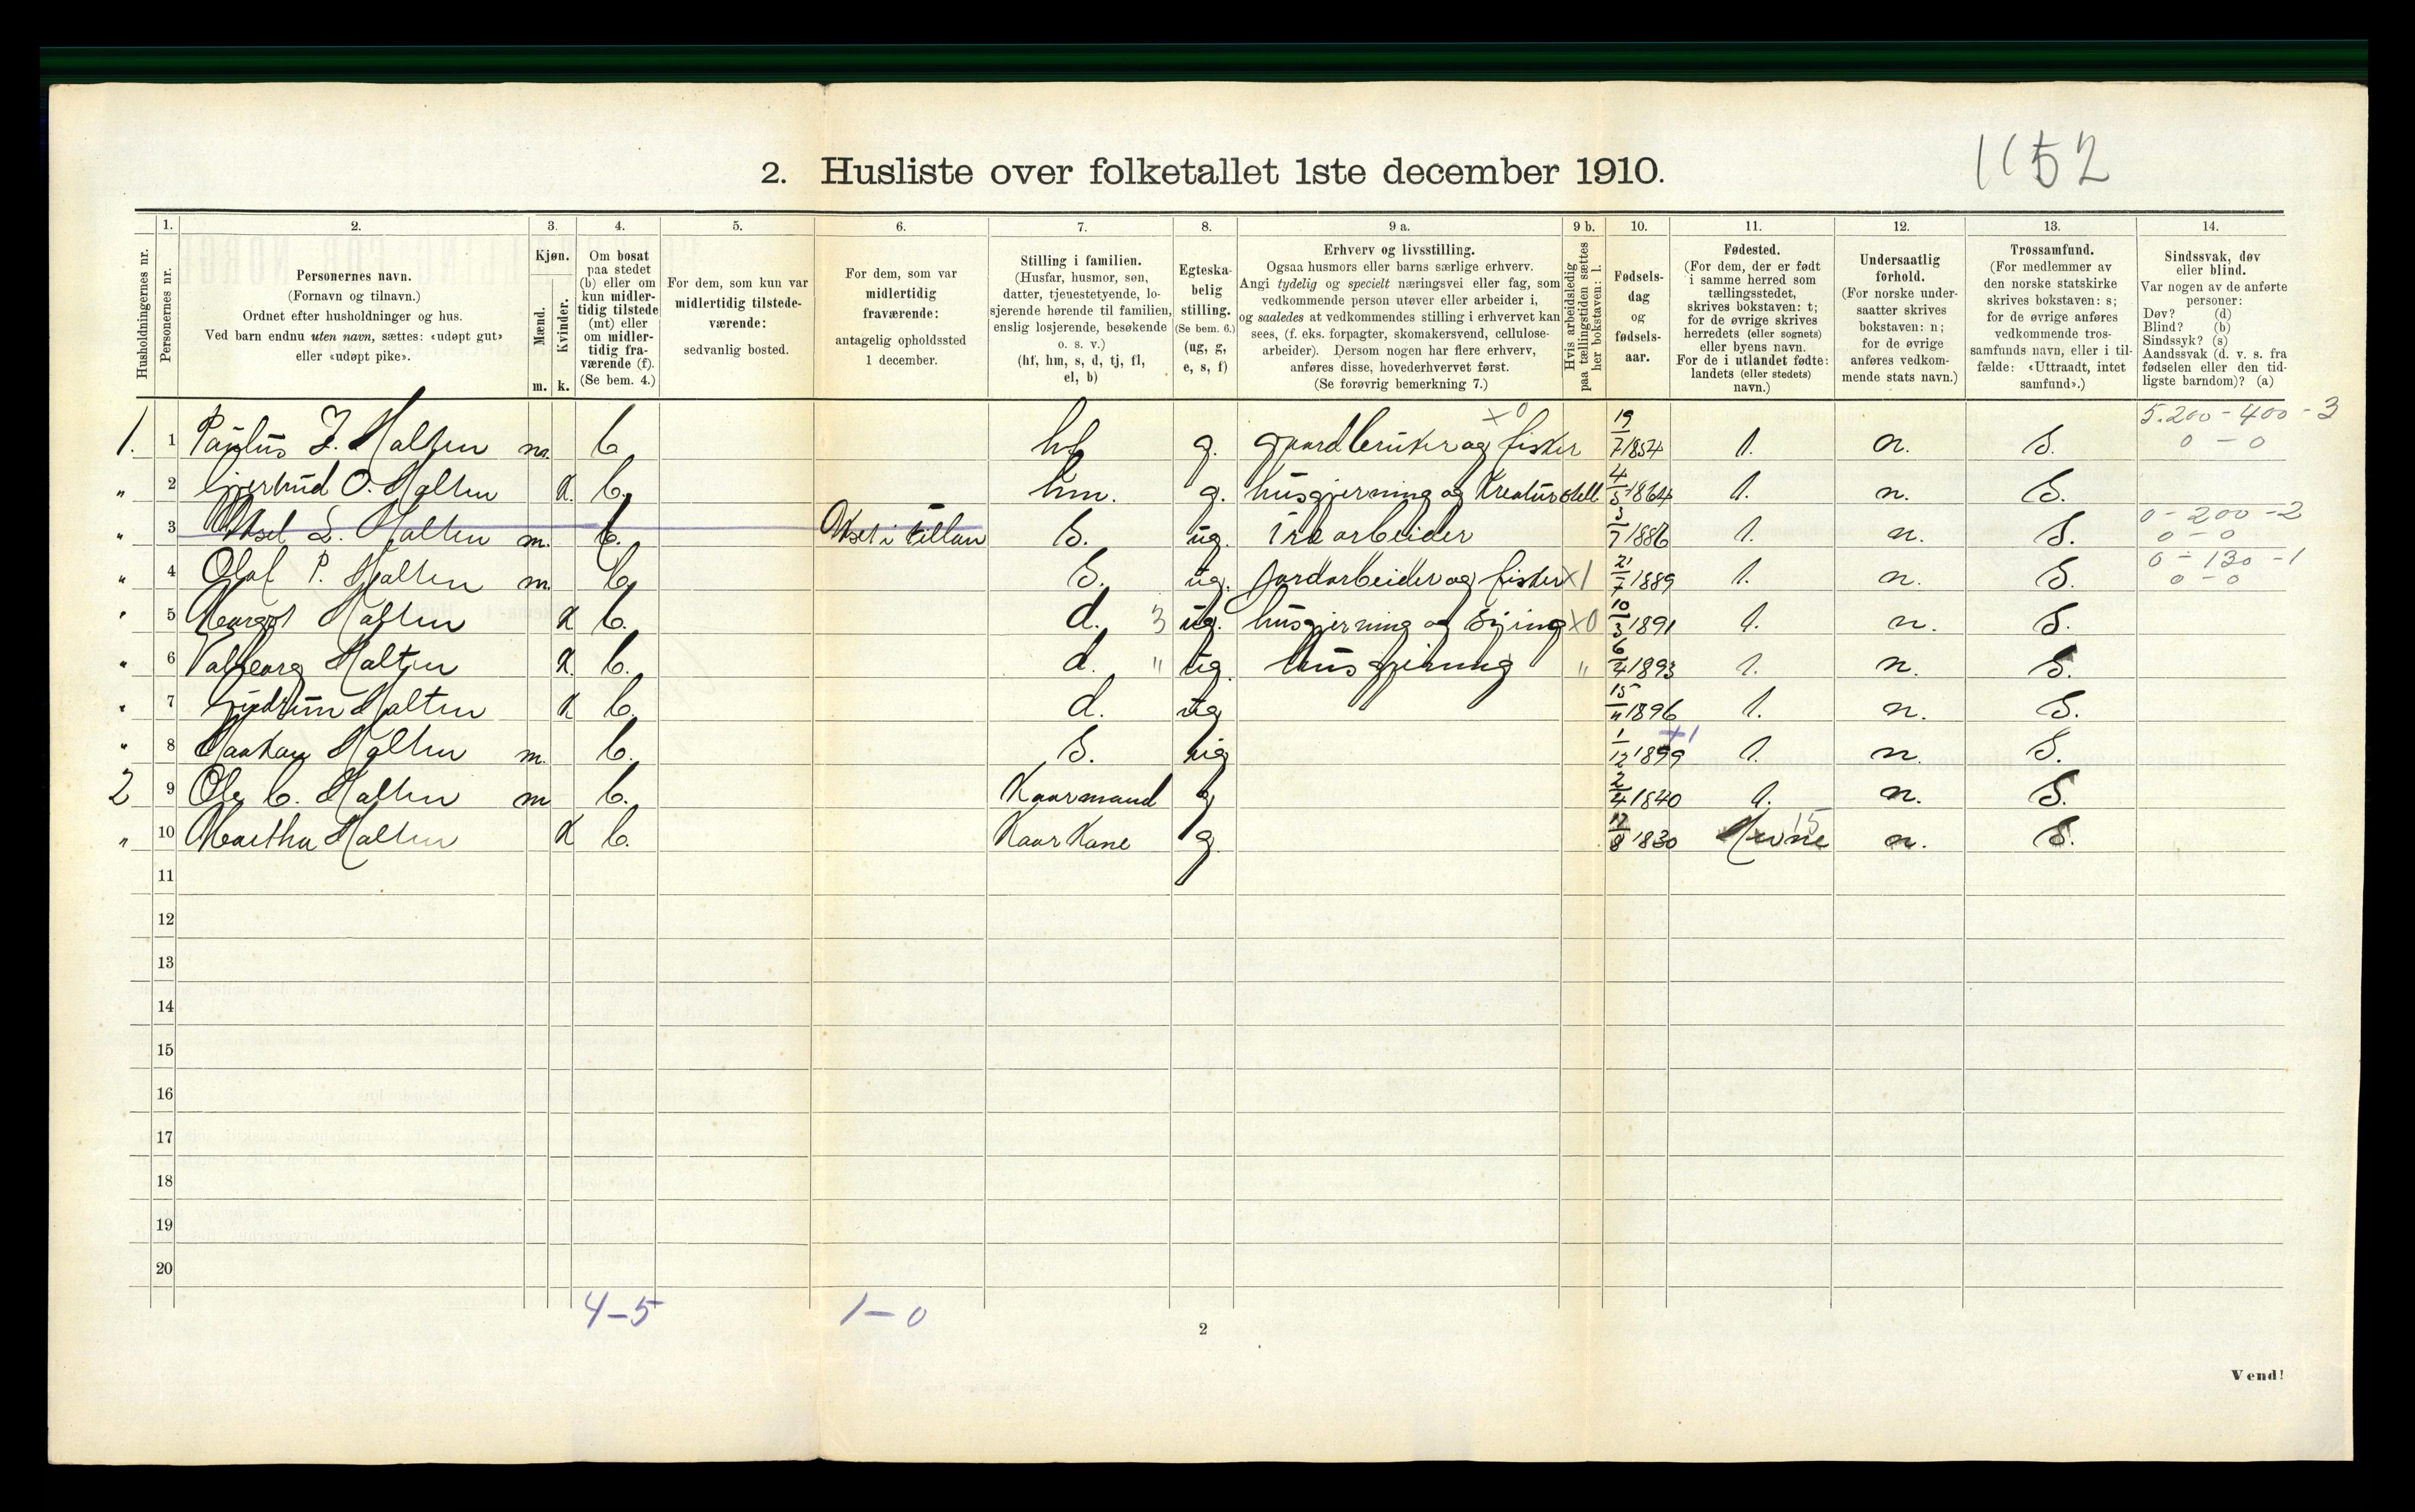 1152
2. Husliste over folketallet 1ste december 1910.
1. 2. 3. 4. 5. 6. 7. 8. 9 a. 9 b. 10. 11. 12. 13. 14.
Husholdningernes nr.
Personernes nr.
Personernes navn.
(Fornavn og tilnavn.)
Ordnet efter husholdninger og hus.
Ved barn endnu uten navn, sættes: «udøpt gut»
eller «udøpt pike».
Kjøn.
Mænd.
Kvinder.
m. k.
Om bosat
paa stedet
(b) eller om
kun midler-
tidig tilstede
(mt) eller
om midler-
tidig fra-
værende (f).
(Se bem. 4.)
For dem, som kun var
midlertidig tilstede-
værende:
sedvanlig bosted.
For dem, som var
midlertidig
fraværende:
antagelig opholdssted
1 december.
Stilling i familien.
(Husfar, husmor, søn,
datter, tjenestetyende, lo-
sjerende hørende til familien,
enslig losjerende, besøkende
o. s. v.)
(hf, hm, s, d, tj, fl,
el, b)
Egteska-
belig
stilling.
(Se bem. 6.)
(ug, g,
e, s, f)
Erhverv og livsstilling.
Ogsaa husmors eller barns særlige erhverv.
Angi tydelig og specielt næringsvei eller fag, som
vedkommende person utøver eller arbeider i,
og saaledes at vedkommendes stilling i erhvervet kan
sees, (f. eks. forpagter, skomakersvend, cellulose-
arbeider). Dersom nogen har flere erhverv,
anføres disse, hovederhvervet først.
(Se forøvrig bemerkning 7.)
Hvis arbeidsledig
paa tællingstiden sættes
her bokstaven: l.
Fødsels-
dag
og
fødsels-
aar.
Fødested.
(For dem, der er født
i samme herred som
tællingsstedet,
skrives bokstaven: t;
for de øvrige skrives
herredets (eller sognets)
eller byens navn.
For de i utlandet fødte:
landets (eller stedets)
navn.)
Undersaatlig
forhold.
(For norske under-
saatter skrives
bokstaven: n;
for de øvrige
anføres vedkom-
mende stats navn.)
Trossamfund.
(For medlemmer av
den norske statskirke
skrives bokstaven: s;
for de øvrige anføres
vedkommende tros-
samfunds navn, eller i til-
fælde: «Uttraadt, intet
samfund».)
Sindssvak, døv
eller blind.
Var nogen av de anførte
personer:
Døv? (d)
Blind? (b)
Sindssyk? (s)
Aandssvak (d. v. s. fra
fødselen eller den tid-
ligste barndom)? (a)
5.200 - 400 - 3
1. 1 Paulus J. Halten m. b. hf g. gaardbruker og fisker x0 19/7 1854 t. n. S. 0 - 0
" 2 Gjertrud O. Halten K. b. hm. g. husgjerning og Kreaturstell 4/5 1864 t. n. S.
" 3 L. Halten m. b. S. ug. arbeider 3/7 1886 t. n. S. 0 - 200 - 2 0 - 0
" 4 Olaf P. Halten m. b. S. ug. Jordarbeider og fisker x1 21/7 1889 t. n. S. 0 - 130 - 1 0 - 0
" 5 Margot Halten K b. d. 3 ug. husgjerning og Sying x0 10/3 1891 t. n. S.
" 6 Valborg Halten K. b. d. " ug. husgjerning " 6/4 1893 t. n. S.
" 7 Gudrun Halten K b. d. ug 15/11 1896 t. n. S.
" 8 Haakon Halten m. b. S. ug 1/12 1899 +1 t. n. S.
2 9 Ole C. Halten m b. Kaarmand g 2/4 1840 t. n. S.
" 10 Martha Halten K b. Kaar Kone g. 12/8 1830 Hevne 15 n. S.
11
12
13
14
15
16
17
18
19
20
4-5 1-0
2
Vend!